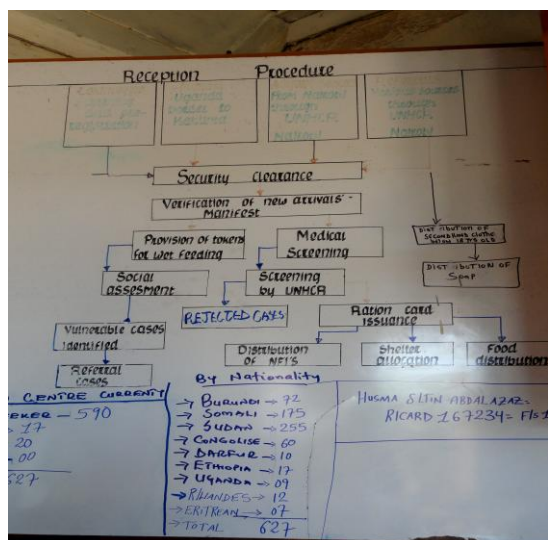 Reception Procedure
Uganda
border to
From Nairobi
through
UNHCR
Nairobi
through
UNHCR
Nairobi
Security clearance
Verification of new arrivals'-
Manifest
Provision of tokens
for Wet feeding
Medical
Screening
DISTRIBUTION OF
DISTIBUTION OF
SOAP
Social
assesment
Screening
by UNHCR
REJECTED CASES
Ration card
issuance
Vulnerable cases
identified
Distribution
of NFI'S
Shelter
allocation
Food
distribution
Referral
cases
CENTRE CURRENT
EKER - 590
17
20
00
627
By Nationality
→ BURUNDI → 72
→ SOMALI → 175
→ SUDAN → 255
→ CONGOLISE → 60
→ DARFUR → 10
→ ETHIOPIA → 17
→ UGANDA → 09
→ RWANDES → 12
→ ERITREAN → 07
→ TOTAL 627
HUSMA ELTIN ABDALAZAZ-
RICARD 167234= F/S1